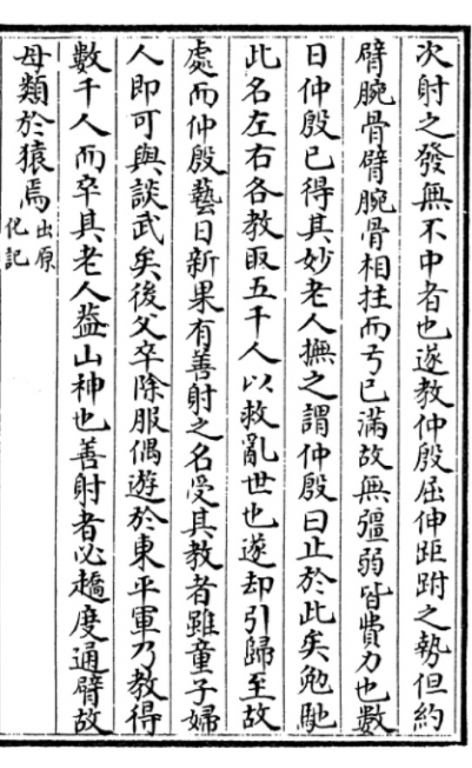 次射之發無不中者也遂教仲殷屈伸距跗之勢但約
臂腕骨臂腕骨相拄而弓已滿故無彊弱皆費力也數
日仲殷已得其妙老人撫之謂仲殷曰止於此矣勉馳
此名左右各教取五千人以救亂世也遂却引歸至故
處而仲殷藝日新果有善射之名受其教者雖童子婦
人即可與談武矣後父卒除服偶遊於東平軍乃教得
數千人而卒其老人葢山神也善射者必趫度通臂故
母類於猿焉出原
化記